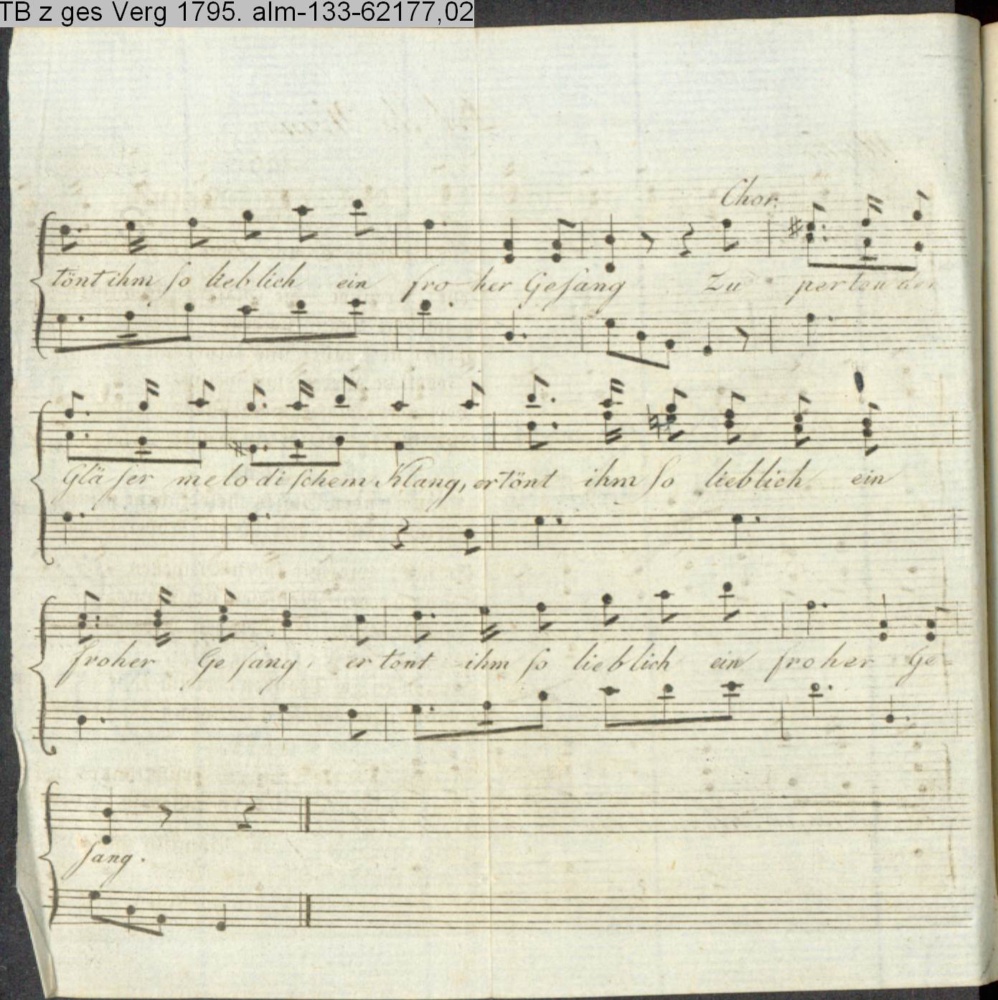 TB z ges Verg 1795. alm-133-62177,02
Chor.
tönt ihm so lieblich ein fro her Gesang Zu perlender
Glä ser melo di schem Klang, ertönt ihm so lieblich ein
froher Ge sang, er tönt ihm so lieblich ein froher Ge-
sang.